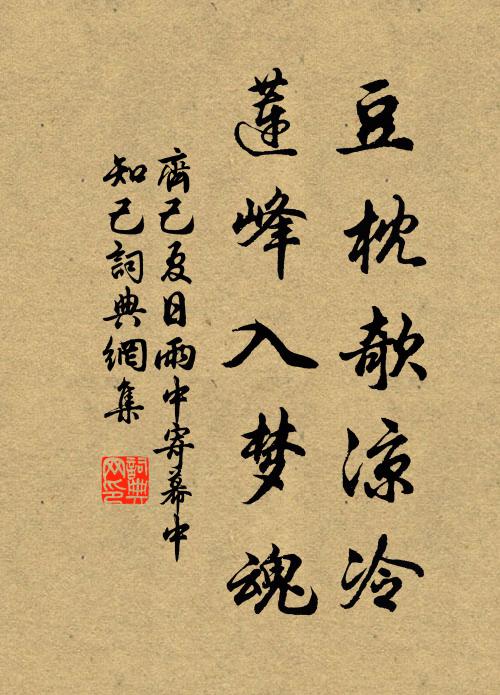 豆枕欹涼冷
蓮峰入梦魂
齊己夏日雨中寄幕中
知己詞典網集
詞典网印